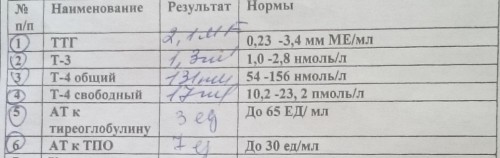 № п/п Наименование Результат Нормы
1 ТТГ 2,1 0,23 -3,4 мм МЕ/мл
2 Т-3 1,3 1,0 -2,8 нмоль/л
3 Т-4 общий 131 54 -156 нмоль/л
4 Т-4 свободный 17 10,2 -23, 2 пмоль/л
5 АТ к тиреоглобулину 3 ед До 65 ЕД/ мл
6 АТ к ТПО 7 ед До 30 ед/мл